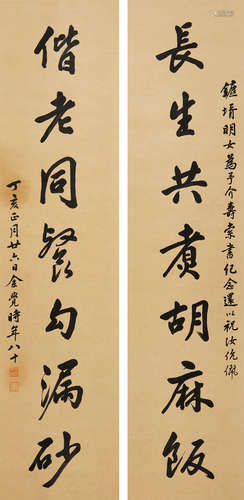 鑣壻明女為予介壽索書紀念還以祝汝伉儷
長生共煮胡麻飯
偕老同餐勾漏砂
丁亥正月廿六日金覺時年八十